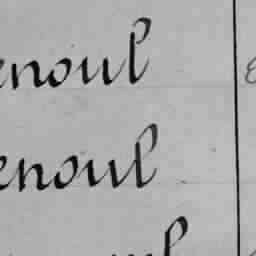 enoul
enoul